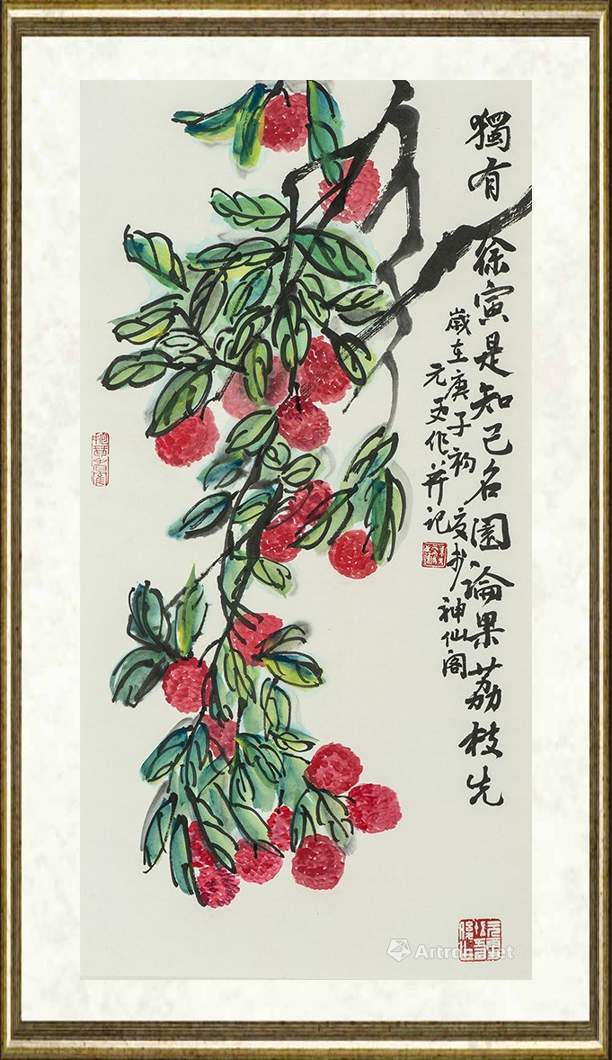 獨有徐寅是知己名園論果荔枝先
歲在庚子初夏於神仙閣
元勇作并記
Artron.Net